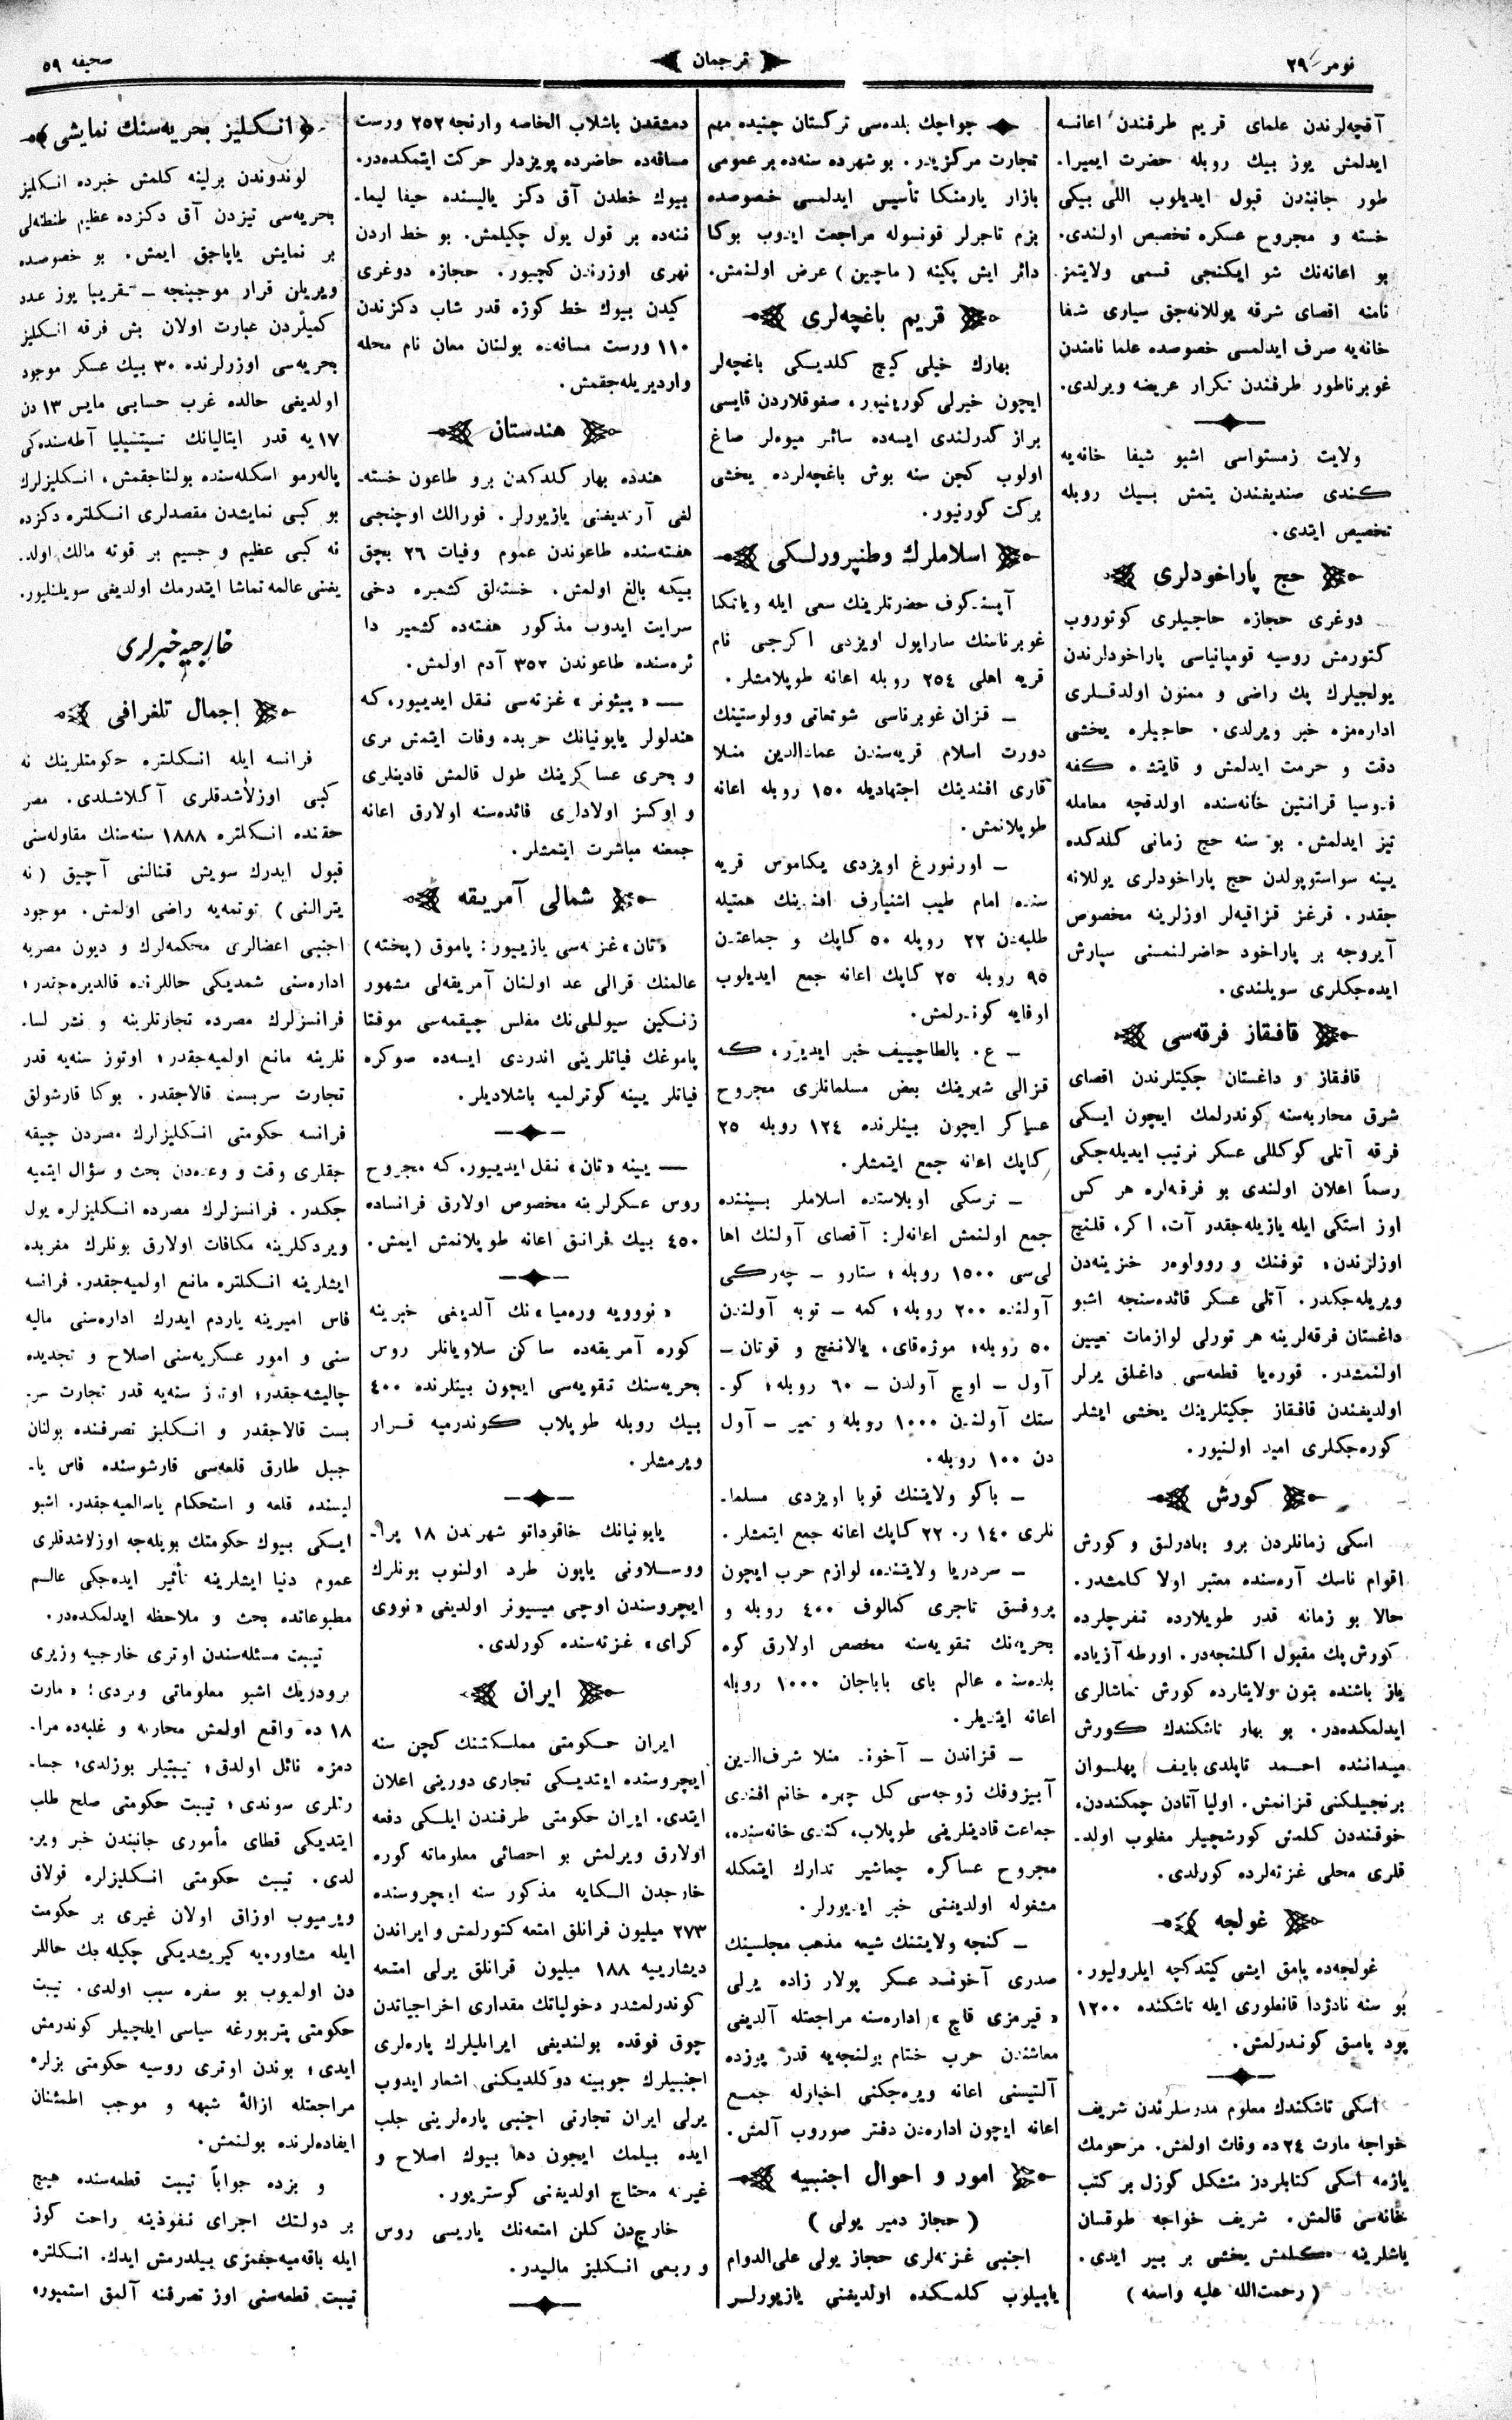 نومر ٢٩
ترجمان
صحيفه ٥٩
آقچه‌لرندن علمای قريم طرفندن اعانه
ايدلمش يوز بيك روبله حضرت ايمپرا‌ـ
طور جانبندن قبول ايديلوب اللی بيكی
خسته و مجروح عسكره تخصيص اولندی.
بو اعانه‌نك شو ايكنجی قسمی ولايتمز
نامنه اقصای شرقه يوللانه‌جق سياری شفا
خانه‌يه صرف ايدلمسی خصوصده علما نامندن
غوبرناطور طرفندن تكرار عريضه ويرلدی.
ولايت زمستواسی اشبو شيفا خانه‌يه
كندی صنديغندن يتمش بيك روبله
تخصيص ايتدی.
حج پاراخودلری
دوغری حجازه حاجيلری كوتوروب
كتورمش روسيه قومپانياسی پاراخودلرندن
يولجيلرك پك راضی و ممنون اولدقلری
اداره‌مزه خبر ويرلدی. حاجيلره يخشی
دقت و حرمت ايدلمش و قايتشده كفه
فيودوسيا قرانتين خانه‌سنده اولدقچه معامله
تيز ايدلمش. بو سنه حج زمانی كلدكده
يينه سواستوپولدن حج پاراخودلری يوللانه
جقدر. قرغز قزاقيه‌لر اوزلرينه مخصوص
آيروجه بر پاراخود حاضرلنمسنی سپارش
ايده‌جكلری سويلندی.
قافقاز فرقه‌سی
قافقاز و داغستان جكيتلرندن اقصای
شرق محاربه‌سنه كوندرلمك ايچون ايكی
فرقه آتلی كوكللی عسكر ترتيب ايديله‌جكی
رسماً اعلان اولندی بو فرقه‌لره هر كس
اوز استكی ايله يازيله‌جقدر آت، اكر، قلنچ
اوزلرندن؛ توفنك و روولوه‌ر خزينه‌دن
ويريله‌جكدر. آتلی عسكر قائده‌سنجه اشبو
داغستان فرقه‌لرينه هر تورلی لوازمات تعيين
اولنمشدر. قوره‌يا قطعه‌سی داغلق يرلر
اولديغندن قافقاز جكيتلرينك يخشی ايشلر
كوره‌جكلری اميد اولنيور.
كورش
اسكی زمانلردن برو بهادرلق و كورش
اقوام ناسك آره‌سنده معتبر اولا كلمشدر.
حالا بو زمانه قدر طويلارده تفرجلرده
كورش پك مقبول اكلنجه‌در. اورطه آزياده
ياز باشنده بتون ولايتلرده كورش تماشالری
ايدلمكده‌در. بو بهار تاشكندك كورش
ميداننده احمد تاپلدی بايف پهلوان
برنجيلكنی قزانمش. اوليا آتادن چمكنددن،
خوقنددن كلمش كورشچيلر مغلوب اولد‌ـ
قلری محلی غزته‌لرده كورلدی.
غولجه
غولجه‌ده پامق ايشی كيتدكچه ايلروليور.
بو سنه نادژدا قانطوری ايله تاشكنده ١٢٠٠
پود پامق كوندرلمش.
اسكی تاشكندك معلوم مدرسلرندن شريف
خواجه مارت ٢٤ ده وفات اولمش. مرحومك
يازمه اسكی كتابلردن متشكل كوزل بر كتب
خانه‌سی قالمش. شريف خواجه طوقسان
ياشلرينه كلمش يخشی بر پير ايدی.
( رحمت‌الله عليه واسعه )
چواچك بلده‌سی تركستان چنيده مهم
تجارت مركزيدر. بو شهرده سنه‌ده بر عمومی
بازار يارمنكا تأسيس ايدلمسی خصوصده
بزم تاجرلر قونسوله مراجعت ايدوب بوكا
دائر ايش پكينه ( ماچين ) عرض اولنمش.
قريم باغچه‌لری
بهارك خيلی كيچ كلديكی باغچه‌لر
ايچون خيرلی كورينيور، صفوقلاردن قايسی
براز كدرلندی ايسه‌ده سائر ميوه‌لر صاغ
اولوب كچن سنه بوش باغچه‌لرده يخشی
بركت كورنيور.
اسلاملرك وطنپرورلكی
آيستكوف حضرتلرينك سعی ايله وياتكا
غوبرناسنك ساراپول اويزدی اكرجی نام
قريه اهلی ٢٥٤ روبله اعانه طوپلامشلر.
ـ قزان غوبرناسی شونعاتی وولوستينك
دورت اسلام قريه‌سندن عمادالدين منلا
قاری افندينك اجتهاديله ١٥٠ روبله اعانه
طوپلانمش.
ـ اورنبورغ اويزدی يكناموس قريه
سنده امام طيب اشنيارف افندينك همتيله
طلبه‌دن ٢٢ روبله ٥٠ كاپك و جماعتدن
٩٥ روبله ٢٥ كاپك اعانه جمع ايديلوب
اوفايه كوندرلمش.
ـ ع. بالطاچييف خبر ايدييور، كه
قزالی شهرينك بعض مسلمانلری مجروح
عساكر ايچون بينلرنده ١٢٤ روبله ٢٥
كاپك اعانه جمع ايتمشلر.
ـ ترسكی اوبلاستده اسلاملر بيننده
جمع اولنمش اعانه‌لر: آقصای آولنك اها
لی‌سی ١٥٠٠ روبله؛ ستارو ـ چه‌ركی
آولنده ٢٠٠ روبله؛ كمه ـ توبه آولندن
٥٠ روبله؛ موژه‌قای، يالانغچ و قوتان ـ
آول ـ اوچ آولدن ـ ٦٠ روبله؛ كو‌ـ
ستك آولندن ١٠٠٠ روبله و تمير ـ آول
دن ١٠٠ روبله.
ـ باكو ولايتنك قوبا اويزدی مسلما‌ـ
نلری ١٤٠ ر. ٢٢ كاپك اعانه جمع ايتمشلر.
ـ سردريا ولايتنده، لوازم حرب ايچون
پروفسق تاجری كمالوف ٤٠٠ روبله و
بحريه‌نك تقويه‌سنه مخصص اولارق كوه
بلده‌سنده عالم بای باباجان ١٠٠٠ روبله
اعانه ايتديلر.
ـ قزاندن ـ آخوند منلا شرف‌الدين
آبيزوفك زوجه‌سی كل چهره خانم افندی
جماعت قادينلرينی طوپلاب، كندی خانه‌سنده،
مجروح عساكره چماشير تدارك ايتمكله
مشغوله اولديغنی خبر ايديورلر.
ـ كنجه ولايتنك شيعه مذهب مجلسينك
صدری آخوند عسكر پولار زاده يرلی
« قيرمزی قاچ » اداره‌سنه مراجعتله آلديغی
معاشندن حرب ختام بولنجه‌يه قدر يوزده
آلتيسنی اعانه ويره‌جكنی اخبارله جمع
اعانه ايچون اداره‌دن دفتر صوروب آلمش.
امور و احوال اجنبيه
( حجاز دمير يولی )
اجنبی غزته‌لری حجاز يولی علی‌الدوام
ياپيلوب كلمكده اولديغنی يازيورلر
دمشقدن باشلاب الخاصه وارنجه ٢٥٢ ورست
مسافه‌ده حاضرده پويزدلر حركت ايتمكده‌در.
بيوك خطدن آق دكز ياليسنده حيفا ليما‌ـ
ننه‌ده بر قول يول چكيلمش. بو خط اردن
نهری اوزرندن كچيور. حجازه دوغری
كيدن بيوك خط كوزه قدر شاب دكزندن
١١٠ ورست مسافه‌ده بولنان معان نام محله
وارديريله‌جقمش.
هندستان
هندده بهار كلدكدن برو طاعون خسته‌ـ
لغی آرتديغنی يازيورلر. فورالك اوچنجی
هفته‌سنده طاعوندن عموم وفيات ٢٦ بچق
بيكه بالغ اولمش. خسته‌لق كشميره دخی
سرايت ايدوب مذكور هفته‌ده كشمير دا
ئره‌سنده طاعوندن ٣٥٢ آدم اولمش.
— « پيئونر » غزته‌سی نقل ايدييور، كه
هندلولر ياپونيانك حربده وفات ايتمش بری
و بحری عساكرينك طول قالمش قادينلری
و اوكسز اولادلری فائده‌سنه اولارق اعانه
جمعنه مباشرت ايتمشلر.
شمالی آمريقه
«تان» غزته‌سی يازييور: پاموق (پخته)
عالمنك قرالی عد اولنان آمريقه‌لی مشهور
زنكين سيوللی‌نك مفلس چيقمه‌سی موقتا
پاموغك فياتلرينی اندردی ايسه‌ده صوكره
فياتلر يينه كوترلميه باشلاديلر.
— يينه «تان» نقل ايدييور، كه مجروح
روس عسكرلرينه مخصوص اولارق فرانساده
٤٥٠ بيك فرانق اعانه طوپلانمش ايمش.
« نووويه وره‌ميا» نك آلديغی خبرينه
كوره آمريقه‌ده ساكن سلاويانلر روس
بحريه‌سنك تقويه‌سی ايچون بينلرنده ٤٠٠
بيك روبله طوپلاب كوندرميه قرار
ويرمشلر.
ياپونيانك خاقوداتو شهرندن ١٨ پرا‌ـ
ووسلاونی ياپون طرد اولنوب بونلرك
ايچروسندن اوچی ميسيونر اولديغی «نووی
كرای» غزته‌سنده كورلدی.
ايران
ايران حكومتی مملكتنك كچن سنه
ايچروسنده ايتديكی تجاری دورينی اعلان
ايتدی. ايران حكومتی طرفندن ايلكی دفعه
اولارق ويرلمش بو احصائی معلوماته كوره
خارجدن الكايه مذكور سنه ايچروسنده
٢٧٣ ميليون فرانلق امتعه كتورلمش و ايراندن
ديشارييه ١٨٨ ميليون قرانلق يرلی امتعه
كوندرلمشدر دخولياتك مقداری اخراجياتدن
چوق فوقده بولنديغی ايرانليلرك پاره‌لری
اجنبيلرك جوبينه دوكلديكنی اشعار ايدوب
يرلی ايران تجارتی اجنبی پاره‌لرينی جلب
ايده بيلمك ايچون دها بيوك اصلاح و
غيرته محتاج اولديغنی كوستريور.
خارجدن كلن امتعه‌نك ياريسی روس
و ربعی انكليز ماليدر.
انكليز بحريه‌سنك نمايشی
لوندوندن برلينه كلمش خبرده انكليز
بحريه‌سی تيزدن آق دكزده عظيم طنطنه‌لی
بر نمايش ياپاجق ايمش. بو خصوصده
ويريلن قرار موجبنجه ـ تقريبا يوز عدد
كميلردن عبارت اولان بش فرقه انكليز
بحريه‌سی اوزرلرنده ٣٠ بيك عسكر موجود
اولديغی حالده غرب حسابی مايس ١٣ دن
١٧ يه قدر ايتاليانك سيتسيليا آطه‌سنده‌كی
پاله‌رمو اسكله‌سنده بولناجقمش، انكليزلرك
بو كبی نمايشدن مقصدلری انكلتره دكزده
نه كبی عظيم و جسيم بر قوته مالك اولد‌ـ
يغنی عالمه تماشا ايتدرمك اولديغی سويلنليور.
خارجيه خبرلری
اجمال تلغرافی
فرانسه ايله انكلتره حكومتلرينك نه
كبی اوزلاشدقلری آكلاشلدی. مصر
حقنده انكلتره ١٨٨٨ سنه‌سنك مقاوله‌سنی
قبول ايدرك سويش قنالنی آچيق ( نه
يترالنی ) توتمه‌يه راضی اولمش. موجود
اجنبی اعضالری محكمه‌لرك و ديون مصريه
اداره‌سنی شمديكی حاللرنده قالديره‌جقدر؛
فرانسزلرك مصرده تجارتلرينه و نشر لسا‌ـ
نلرينه مانع اولميه‌جقدر؛ اوتوز سنه‌يه قدر
تجارت سربست قالاجقدر. بوكا قارشولق
فرانسه حكومتی انكليزلرك مصردن چيقه
جقلری وقت و وعده‌دن بحث و سؤال ايتميه
جكدر. فرانسزلرك مصرده انكليزلره يول
ويردكلرينه مكافات اولارق بونلرك مغربده
ايشلرينه انكلتره مانع اولميه‌جقدر. فرانسه
فاس اميرينه ياردم ايدرك اداره‌سنی ماليه
سنی و امور عسكريه‌سنی اصلاح و تجديده
چاليشه‌جقدر؛ اوتوز سنه‌يه قدر تجارت سر‌ـ
بست قالاجقدر و انكليز تصرفنده بولنان
جبل طارق قلعه‌سی قارشوسنده فاس يا‌ـ
ليسنده قلعه و استحكام ياسالميه‌جقدر. اشبو
ايكی بيوك حكومتك بويله‌جه اوزلاشدقلری
عموم دنيا ايشلرينه تأثير ايده‌جكی عالم
مطبوعاتده بحث و ملاحظه ايدلمكده‌در.
تيبت مسئله‌سندن اوتری خارجيه وزيری
برودريك اشبو معلوماتی ويردی: « مارت
١٨ ده واقع اولمش محاربه و غلبه‌ده مرا‌ـ
دمزه نائل اولدق؛ تيبتيلر بوزلدی؛ جسا‌ـ
رتلری سوندی؛ تيبت حكومتی صلح طلب
ايتديكی قطای مأموری جانبندن خبر وير‌ـ
لدی. تيبت حكومتی انكليزلره قولاق
ويرميوب اوزاق اولان غيری بر حكومت
ايله مشاوره‌يه كيريشديكی چكيله‌جك حاللر
دن اولميوب بو سفره سبب اولدی. تيبت
حكومتی پتربورغه سياسی ايلچيلر كوندرمش
ايدی؛ بوندن اوتری روسيه حكومتی بزلره
مراجعتله ازالۀ شبهه و موجب اطمئنان
ايفاده‌لرنده بولنمش.
و بزده جواباً تيبت قطعه‌سنده هيچ
بر دولتك اجرای نفوذينه راحت كوز
ايله باقه‌ميه‌جغمزی بيلدرمش ايدك. انكلتره
تيبت قطعه‌سنی اوز تصرفنه آلمق استميور؛